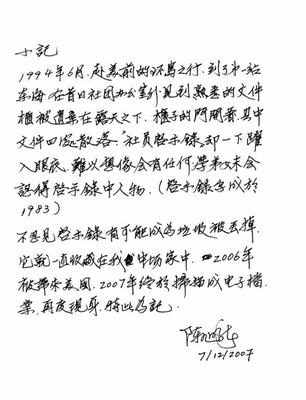 小記
1994年6月,赴美前的环島之行,到了第一站
东海,在昔日社团办公室外,見到熟悉的文件
櫃被遺棄在露天之下,櫃子的門開着,其中
文件四處散落。"社員啓示錄"却一下躍
入眼底,難以想像会有任何学弟妹会
認得啓示錄中人物.(啓示錄写成於
1983)
不忍見啓示錄有可能成為垃圾被丢掉,
它就一直收藏在我中坜家中,2006年
被帶來美國.2007年終於掃描成电子檔
案,再度現身.特此為記.
陳
7/12/2007